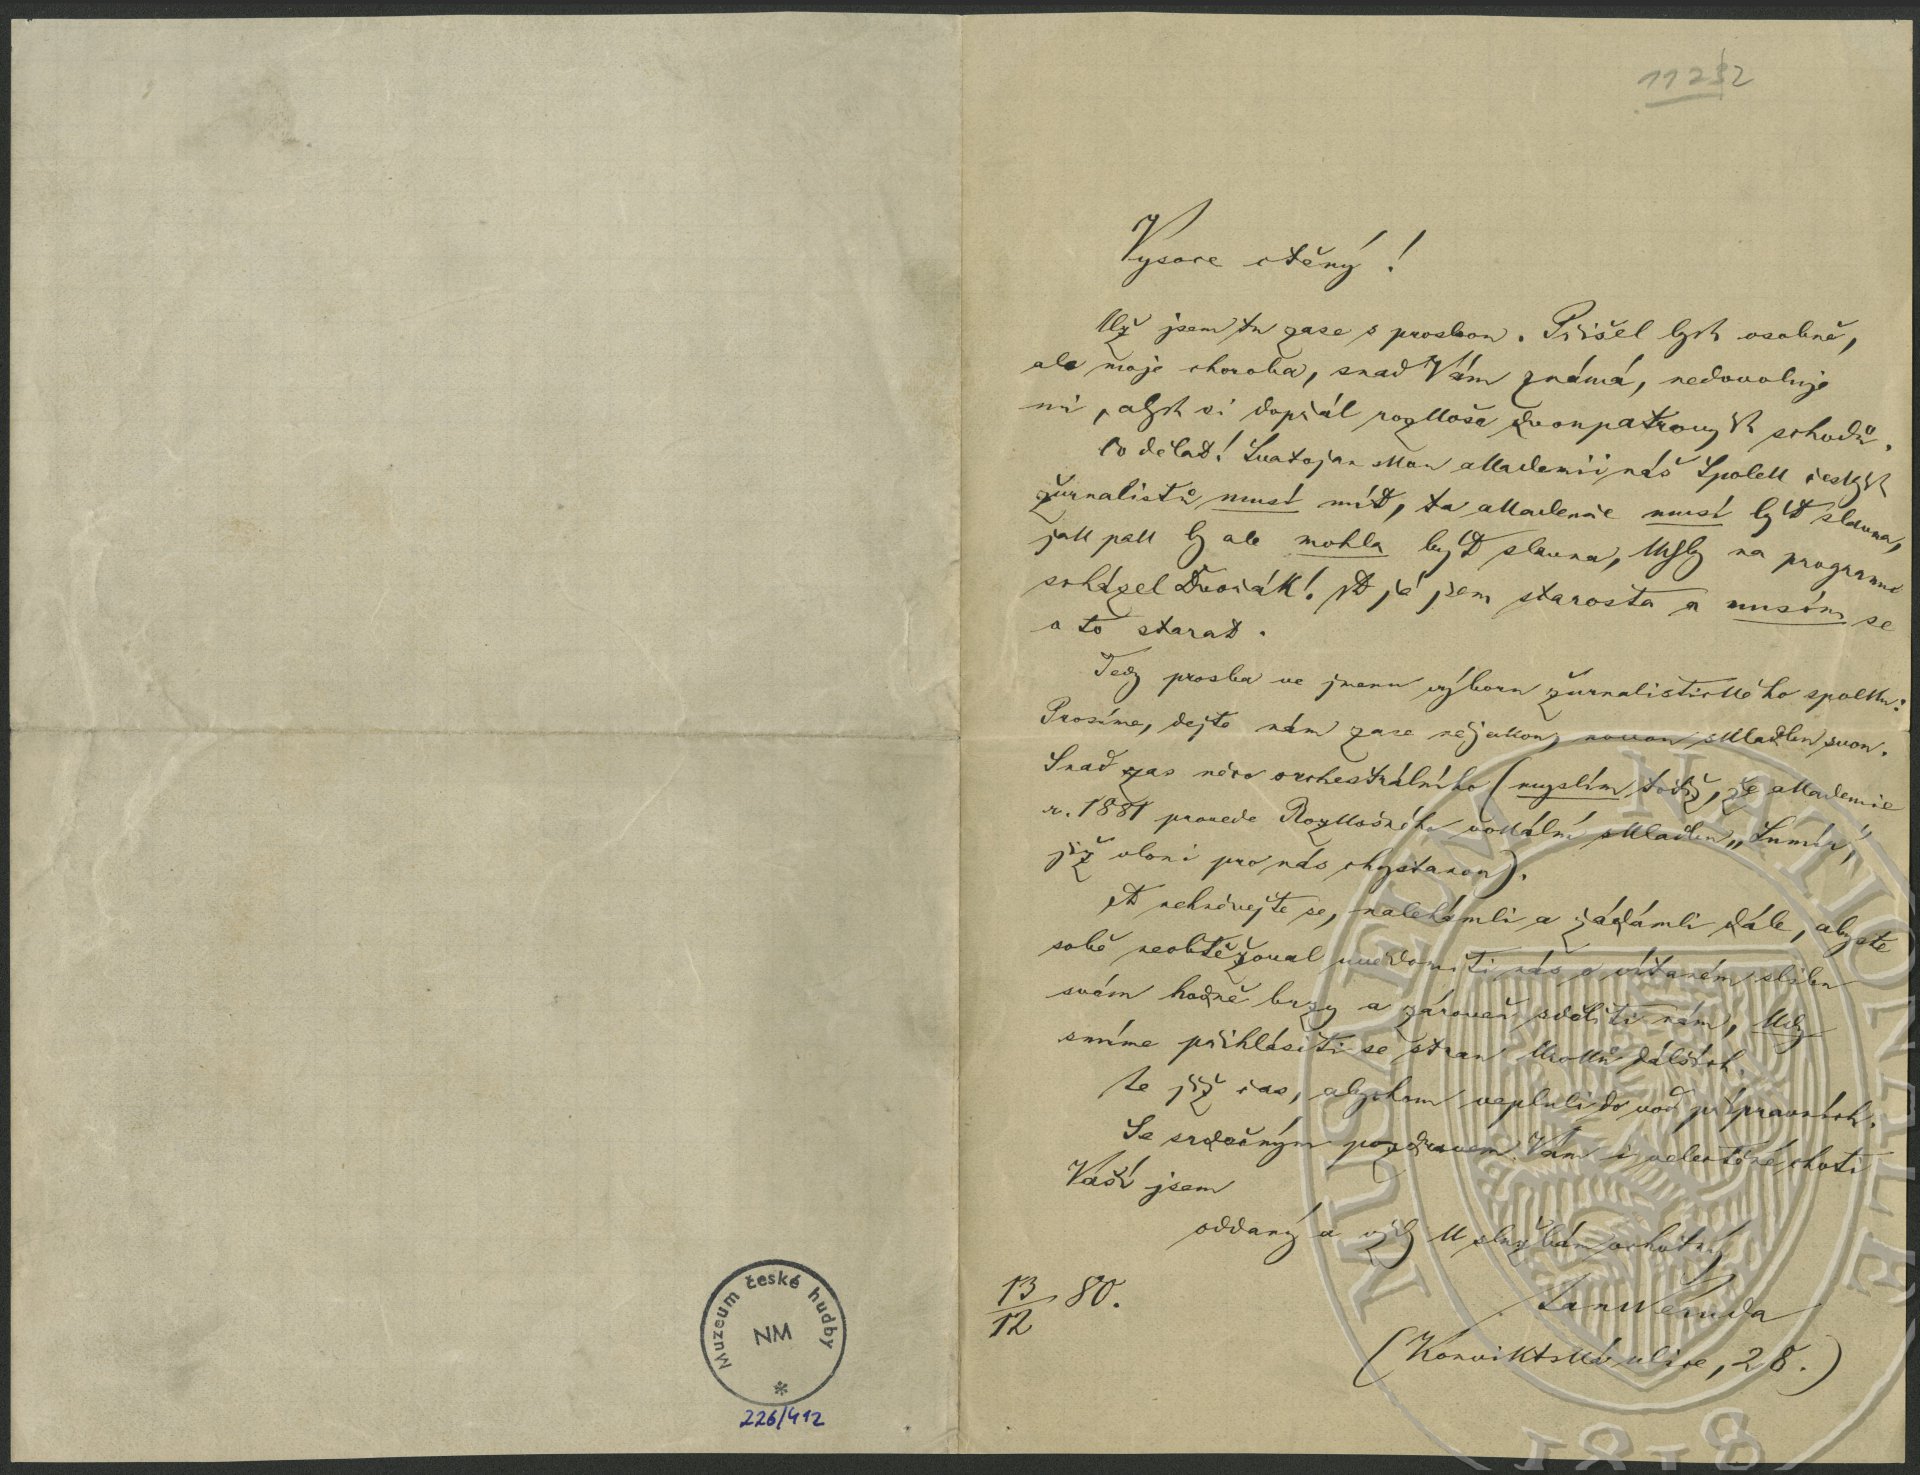 11232
Vysoce ctěný!
Už jsem tu zase s prosbou. Přišel bych osobně,
ale moje choroba, snad Vám známá, nedovoluje
mi, abych si dopřál rozkoše dvoupatrových schodů.
Co dělat! Svatojanskou akademii náš Spolek českých
žurnalistů musí mít, ta akademie musí být slavna,
jak pak by ale mohla být slavna, kdyby na programu
scházel Dvořák! A já jsem starosta a musím se
o to starat.
Tedy prosba ve jmenu výboru žurnalistického spolku:
Prosíme, dejte nám zase nějakou novou skladbu svou.
Snad zas něco orchestrálního (myslím totiž, že akademie
r. 1881 provede Rozkošného vokální skladbu „Šumár",
již vloni pro nás chystanou).
A nehněvejte se, naléhámli a žádámli dále, abyste
sobě neobtěžoval uvědomiti nás o vítaném slibu
svém hodně brzy a zároveň sděliti nám, kdy
smíme přihlásiti se stran kroků dálších.
Je již čas, abychom vepluli do vod přípravních.
Se srdečným pozdravem Vám i velectěné choti
Vaší jsem
oddaný a vždy k službám ochotný
Jan Neruda
13/12 80.
(Konviktská ulice, 28.)
Muzeum české hudby
NM
*
226/412
MUSEUM NATIONALE
1818